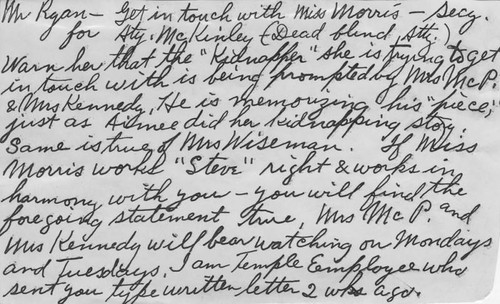 Mr Ryan- Get in touch with Miss Morris - Secy.
for Atty. McKinley (Dead blind, atty.)
Warn her that the "Kidnapper" she is trying to get
in touch with is being prompted by Mrs McP.
& Mrs Kennedy. He is memorizing his "piece,"
just as Aimee did her kidnapping story.
Same is true of Mrs Wiseman. If Miss
Morris works "Steve" right & works in
harmony with you - you will find the
foregoing statement true, Mrs McP. and
Mrs Kennedy will bear watching on Mondays
and Tuesdays. I am Temple Employee who
sent you type written letter 2 wks ago.